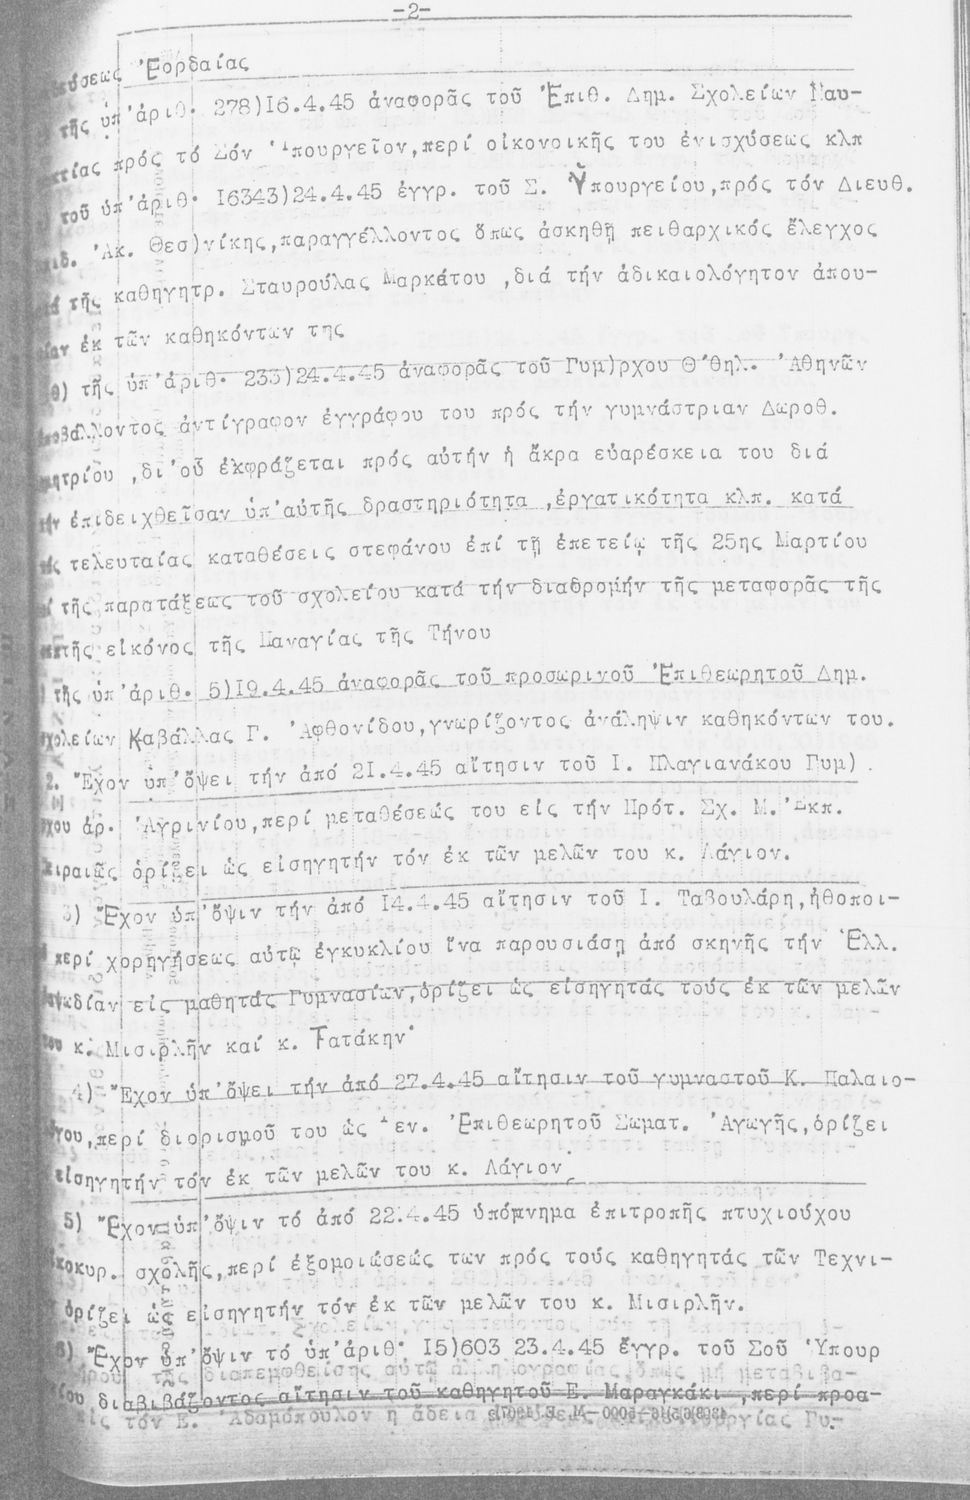 -2-
Ἐορδαίας
τῆς ὑπ'ἀριθ. 278)16.4.45 ἀναφορᾶς τοῦ Ἐπιθ. Δημ. Σχολείων Ναυ-
κτίας πρός τό Σόν Ὑπουργεῖον,περί οἰκονοικῆς του ἐνισχύσεως κλπ
τοῦ ὑπ'ἀριθ. 16343)24.4.45 ἐγγρ. τοῦ Σ. Ὑπουργείου,πρός τόν Διευθ.
Ἀκ. Θεσ)νίκης,παραγγέλλοντος ὅπως ἀσκηθῇ πειθαρχικός ἔλεγχος
τῆς καθηγητρ. Σταυρούλας Μαρκέτου ,διά τήν ἀδικαιολόγητον ἀπου-
ἐκ τῶν καθηκόντων της
θ) τῆς ὑπ'ἀριθ. 233)24.4.45 ἀναφορᾶς τοῦ Γυμ)ρχου Θ'θηλ. Ἀθηνῶν
ὑποβάλλοντος ἀντίγραφον ἐγγράφου του πρός τήν γυμνάστριαν Δωροθ.
μητρίου ,δι'οὗ ἐκφράζεται πρός αὐτήν ἡ ἄκρα εὐαρέσκεια του διά
τήν ἐπιδειχθεῖσαν ὑπ'αὐτῆς δραστηριότητα ,ἐργατικότητα κλπ. κατά
τάς τελευταίας καταθέσεις στεφάνου ἐπί τῇ ἐπετείῳ τῆς 25ης Μαρτίου
τῆς παρατάξεως τοῦ σχολείου κατά τήν διαδρομήν τῆς μεταφορᾶς τῆς
εἰκόνος τῆς Παναγίας τῆς Τήνου
) τῆς ὑπ'ἀριθ. 5)19.4.45 ἀναφορᾶς τοῦ προσωρινοῦ Ἐπιθεωρητοῦ Δημ.
σχολείων Καβάλλας Γ. Ἀφθονίδου,γνωρίζοντος ἀνάληψιν καθηκόντων του.
2. Ἔχον ὑπ'ὄψει τήν ἀπό 21.4.45 αἴτησιν τοῦ Ι. Πλαγιανάκου Γυμ)
χου ἀρ. Ἀγρινίου,περί μεταθέσεώς του εἰς τήν Πρότ. Σχ. Μ. Ἐκπ.
ειραιῶς ὁρίζει ὡς εἰσηγητήν τόν ἐκ τῶν μελῶν του κ. Λάγιον.
3) Ἔχον ὑπ'ὄψιν τήν ἀπό 14.4.45 αἴτησιν τοῦ Ι. Ταβουλάρη,ἠθοποι-
περί χορηγήσεως αὐτῷ ἐγκυκλίου ἵνα παρουσιάσῃ ἀπό σκηνῆς τήν Ἑλλ.
ραψωδίαν εἰς μαθητάς Γυμνασίων,ὁρίζει ὡς εἰσηγητάς τούς ἐκ τῶν μελῶν
του κ. Μισιρλῆν καί κ. Τατάκην
4) Ἔχον ὑπ'ὄψει τήν ἀπό 27.4.45 αἴτησιν τοῦ γυμναστοῦ Κ. Παλαιο-
γου,περί διορισμοῦ του ὡς Γεν. Ἐπιθεωρητοῦ Σωματ. Ἀγωγῆς,ὁρίζει
εἰσηγητήν τόν ἐκ τῶν μελῶν του κ. Λάγιον
5) Ἔχον ὑπ'ὄψιν τό ἀπό 22.4.45 ὑπόμνημα ἐπιτροπῆς πτυχιούχου
οικοκυρ. σχολῆς,περί ἐξομοιώσεώς των πρός τούς καθηγητάς τῶν Τεχνι-
ὁρίζει ὡς εἰσηγητήν τόν ἐκ τῶν μελῶν του κ. Μισιρλῆν.
6) Ἔχον ὑπ'ὄψιν τό ὑπ'ἀριθ. 15)603 23.4.45 ἔγγρ. τοῦ Σοῦ Ὑπουρ
γείου διαβιβάζοντος αἴτησιν τοῦ καθηγητοῦ Ε. Μαραγκάκι ,περί προα-